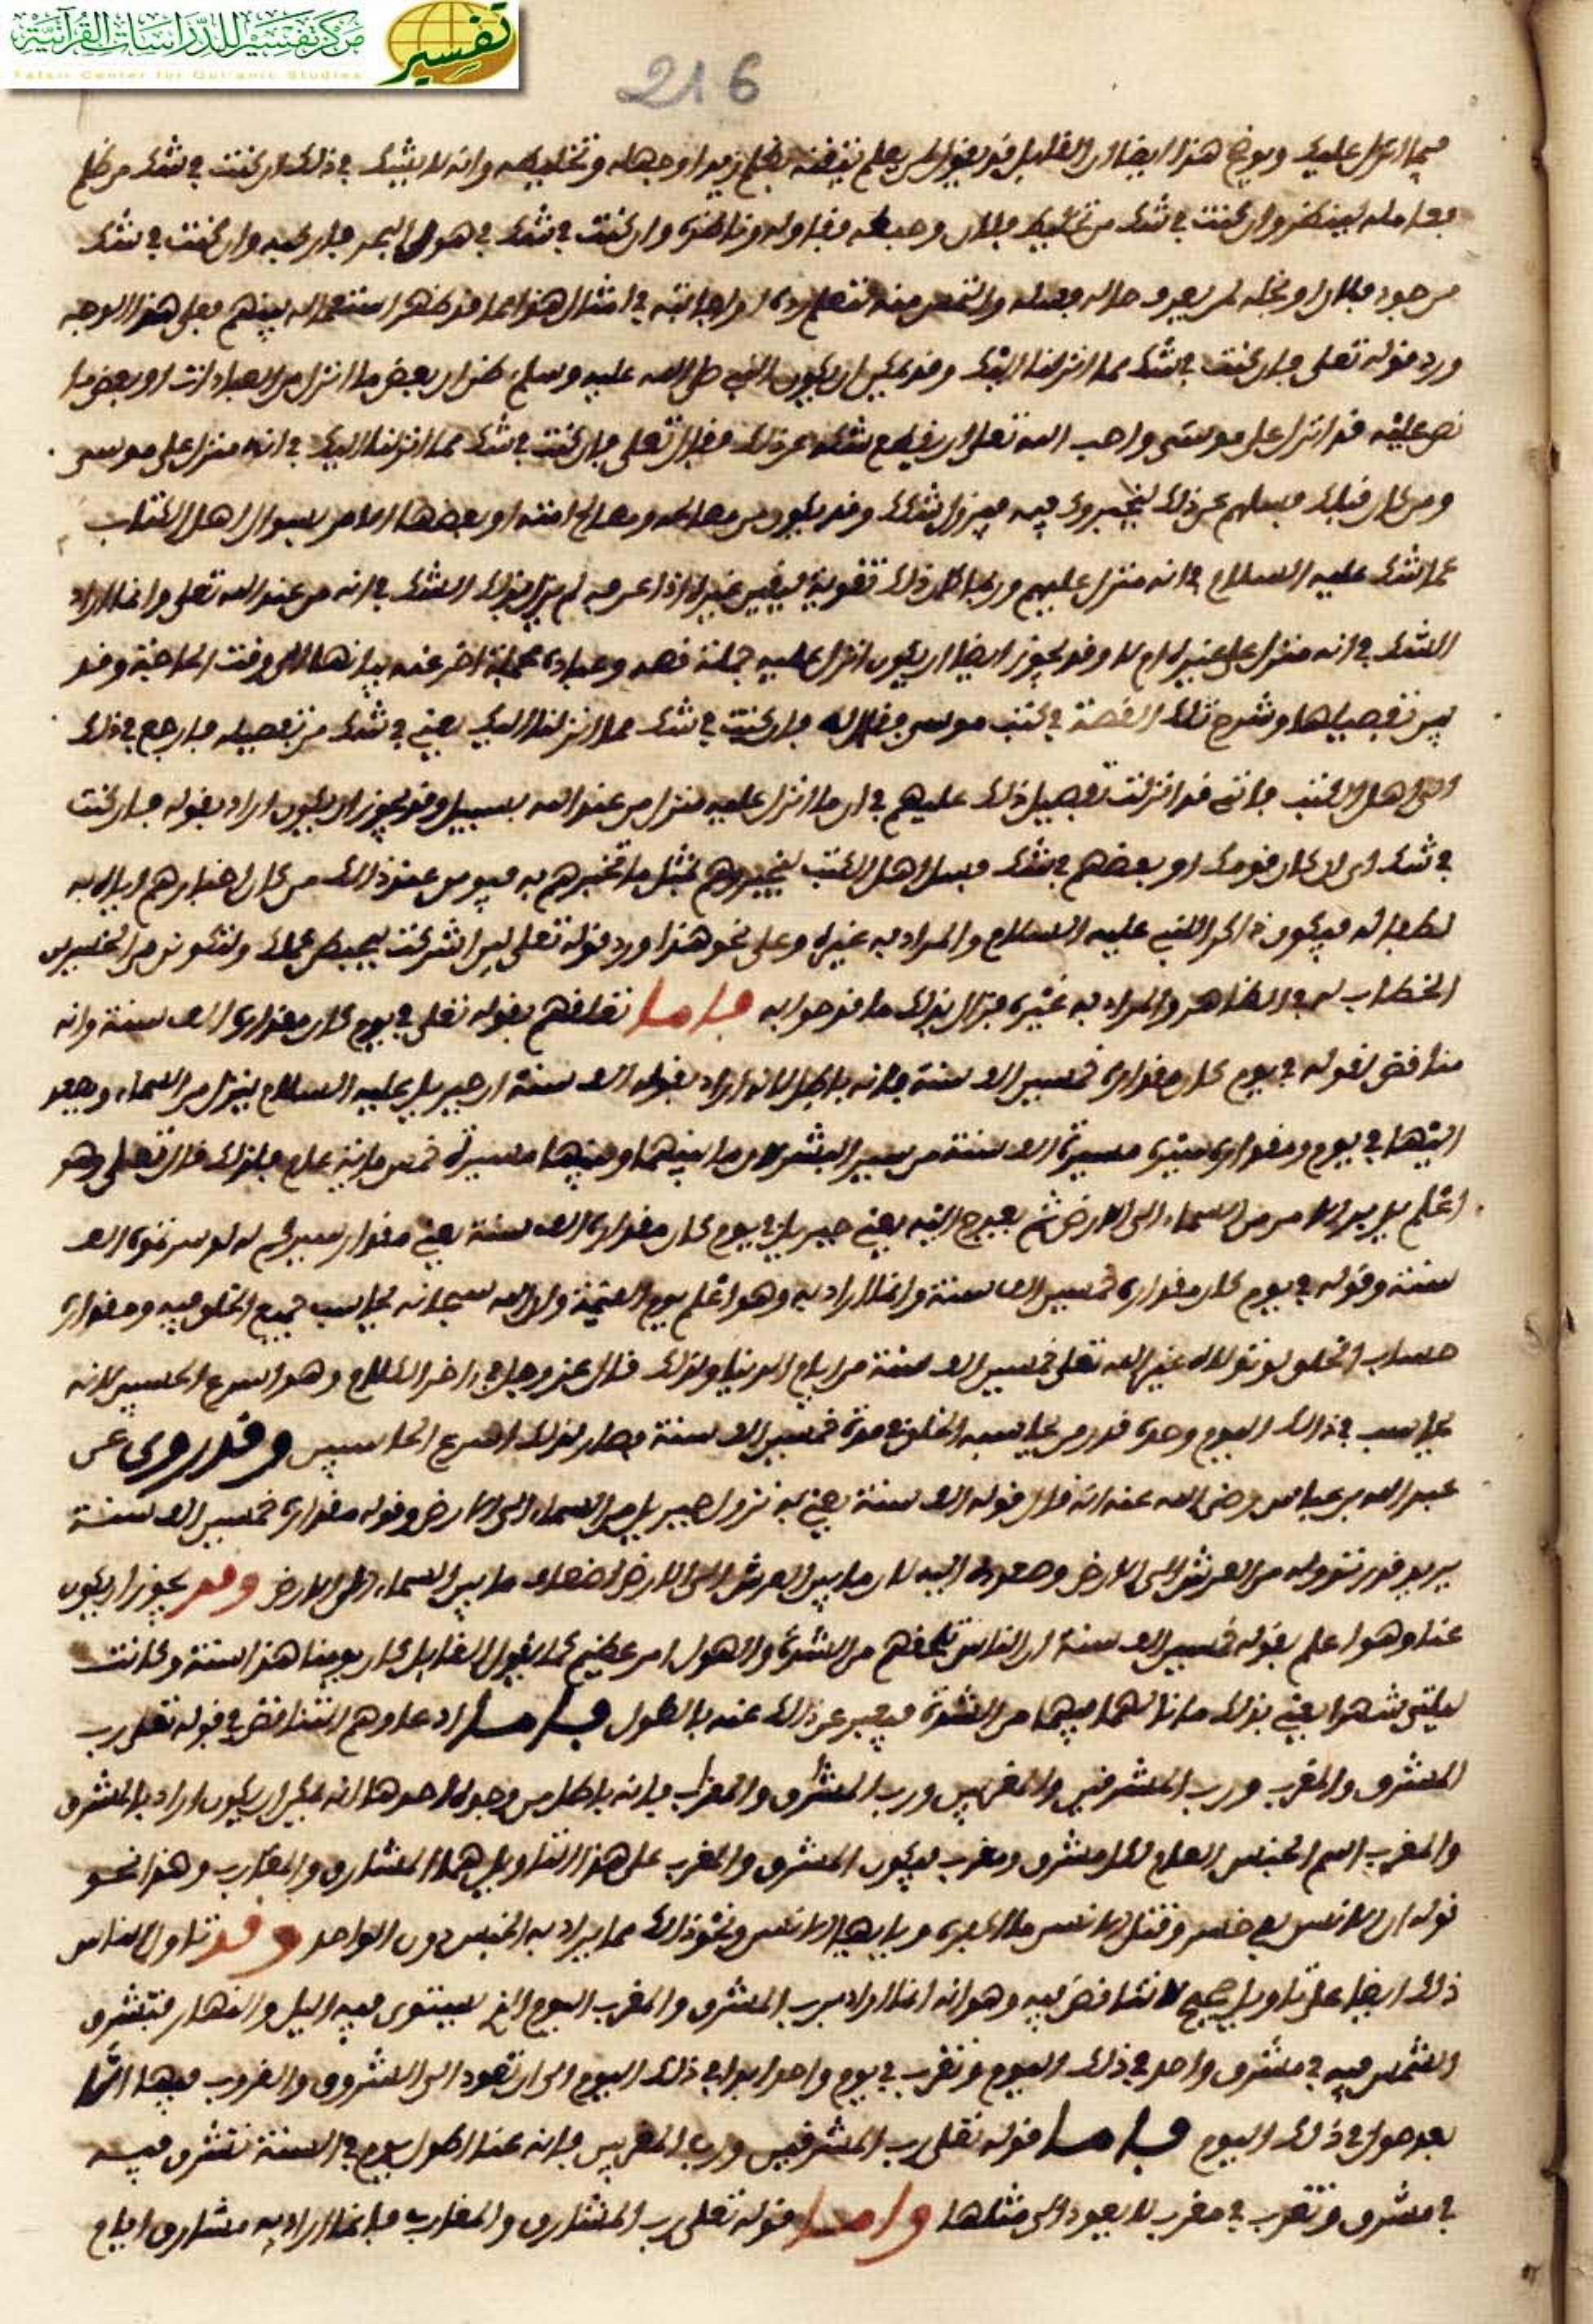 مركز تفسير للدراسات القرآنية
Tafsir Center for Qur'anic Studies
تفسير
216
فيما انزل عليك ويوضح هذا ايضا ان القايل قد يقول لمن يعلم بظلم زيد او جهله وتخليطه وانه لا يشك في ذلك ان كنت في شك من ظلم
فعامله لينكر وان كنت في شك من فلان وحبطه فقاوله وناظره وان كنت في شك في هول البحر فاركبه وان كنت في شك
من جود فلان او بخله لمن يعرف حاله فسله والتمس منه تعلم رده او اجابته في امثال هذا مما قد ظهر استعماله بينهم فعلى هذا الوجه
ورد قوله تعلى فان كنت في شك مما انزلنا اليك وقد يمكن ان يكون النبي صلى الله عليه وسلم ظن ان بعض ما انزل من العبادات او بعض ما
نص عليه قد انزل على موسى واحب الله تعلى ان يقطع شكه عن ذلك فقال تعلى فان كنت في شك مما انزلنا اليك في انه منزل على موسى
ومن كان قبلك فسلهم عن ذلك ليخبروك فيه فيزول شكك وقد يكون من مصالحه ومصالح امته او بعضها الامر بسوال اهل الكتاب
عما شك عليه السلام في انه منزل عليهم وربما كان ذلك تقوية ليقين غيره اذا عرفه لم يزل بذلك الشك في انه من عند الله تعلى وانما اراد
الشك في انه منزل على غيره ام لا وقد يجوز ايضا ان يكون انزل عليه جملة قصة وعبادة مجملة اخر عنه بيانها الى وقت الحاجة وقد
بين تفصيلها وشرح تلك القصة في كتب موسى فقال له فان كنت في شك مما انزلنا اليك يعني في شك من تفصيله فارجع في ذلك
الى اهل الكتب فاني قد انزلت تفصيل ذلك عليهم في ان ما انزل عليه منزل من عند الله بسبيل وقد يجوز ان يكون اراد بقوله فان كنت
في شك اي ان كان قومك او بعضهم في شك فسل اهل الكتب ليخبروهم بمثل ما تخبرهم به فيومن عند ذلك من كان اخبارهم اياه به
لطفا له فيكون ذاكرا للنبي عليه السلام والمراد به غيره وعلى نحو هذا ورد قوله تعلى لين اشركت ليحبطن عملك ولتكونن من الخسرين
الخطاب له في الظاهر والمراد به غيره فزال بذلك ما قدحوا به فاما تعلقهم بقوله تعلى في يوم كان مقداره الف سنة وانه
مناقض لقوله في يوم كان مقداره خمسين الف سنة فانه باطل لانه اراد بقوله الف سنة ان جبريل عليه السلام ينزل من السماء ويصعد
اليها في يوم ومقداره مسيرة الف سنة من سير البشر لان ما بينهما وبينها مسيرة خمس ماية عام فلذلك قال تعلى وهو
اعلم يدبر الامر من السماء الى الارض ثم يعرج اليه يعني جبريل في يوم كان مقداره الف سنة يعني مقدار سيركم له لو سرتموه الف
سنة وقوله في يوم كان مقداره خمسين الف سنة وانما اراد به وهو اعلم يوم القيمة وان الله سبحانه يحاسب جميع الخلق فيه ومقداره
حساب الخلق لو تولاه غير الله تعلى خمسين الف سنة من ايام الدنيا ولذلك قال عز وجل في اخر الكلام وهو اسرع الحسبين لانه
يحاسب في ذلك اليوم وحده قدر من يحاسبه الخلق في مدة خمسين الف سنة فصار لذلك اسرع الحاسبين وقد روي عن
عبد الله بن عباس رضي الله عنه انه قال قوله الف سنة يعني به نزول جبريل من السماء الى الارض وقوله مقداره خمسين الف سنة
يريد قدر نزوله من العرش الى الارض وصعوده اليه لان ما بين العرش الى الارض اضعاف ما بين السماء الى الارض وقد يجوز ان يكون
عنا وهو اعلم بقوله خمسين الف سنة ان الناس يلحقهم من الشدة والهول امر عظيم كما يقول القايل كان يومنا هذا سنة وكانت
ليلتي شهرا يعني بذلك ما نالهما فيهما من الشدة فيعبر عن ذلك عنه بالطول فاما ادعاوهم التناقض في قوله تعلى رب
المشرق والمغرب ورب المشرقين والمغربين ورب المشرق والمغرب فانه باطل من وجوه احدها انه يمكن ان يكون اراد بالمشرق
والمغرب اسم الجنس العام لكل مشرق ومغرب فيكون المشرق والمغرب على هذا التاويل هما المشارق والمغارب وهذا نحو
قوله ان الانسن لفي خسر وقتل الانسن ما اكفره ويايها الانسن ونحو ذلك مما يراد به الجنس دون الواحد وقد تاول الناس
ذلك ايضا على تاويل صحيح لا تناقض فيه وهو انه انما اراد برب المشرق والمغرب اليوم الذي يستوي فيه اليل والنهار فتشرق
الشمس فيه في مشرق واحد في ذلك اليوم وتغرب في يوم واحد ابدا في ذلك اليوم الى ان تعود الى الشروق والغروب فيها
بعد حول في ذلك اليوم فاما قوله تعلى رب المشرقين ورب المغربين فانه عنا اطول يوم في السنة تشرق فيه
في مشرق وتغرب في مغرب لا يعود الى مثلها واما قوله تعلى رب المشارق والمغارب فانما اراد به مشارق ايام